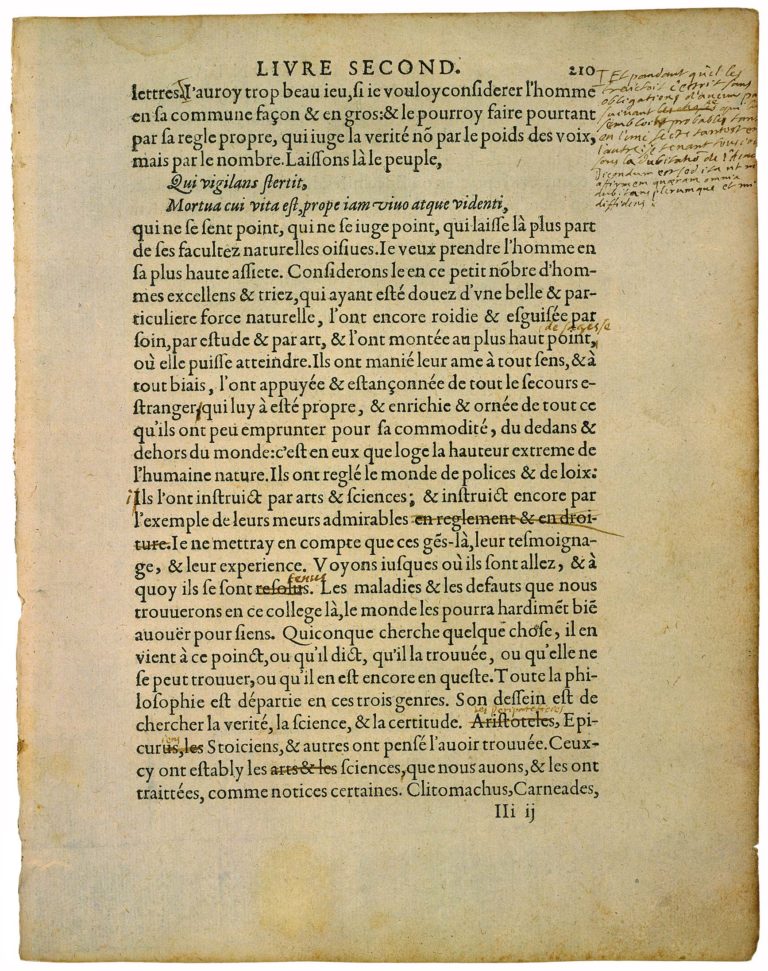 LIVRE SECOND. 210
lettres. I'auroy trop beau ieu, si ie vouloy considerer l'homme
en sa commune façon & en gros: & le pourroy faire pourtant
par sa regle propre, qui iuge la verité nõ par le poids des voix,
mais par le nombre. Laissons là le peuple,
Qui vigilans stertit,
Mortua cui vita est, prope iam viuo atque videnti,
qui ne se sent point, qui ne se iuge point, qui laisse là plus part
de ses facultez naturelles oisiues. Ie veux prendre l'homme en
sa plus haute assiete. Considerons le en ce petit nõbre d'hom-
mes excellens & triez, qui ayant esté douez d'vne belle & par-
ticuliere force naturelle, l'ont encore roidie & esguisée par
soin, par estude & par art, & l'ont montée au plus haut point,
de sagesse
où elle puisse atteindre. Ils ont manié leur ame à tout sens, & à
tout biais, l'ont appuyée & estançonnée de tout le secours e-
stranger, qui luy à esté propre, & enrichie & ornée de tout ce
qu'ils ont peu emprunter pour sa commodité, du dedans &
dehors du monde: c'est en eux que loge la hauteur extreme de
l'humaine nature. Ils ont reglé le monde de polices & de loix:
Ils l'ont instruict par arts & sciences; & instruict encore par
l'exemple de leurs meurs admirables en reglement & en droi-
ture. Ie ne mettray en compte que ces gẽs-là, leur tesmoigna-
ge, & leur experience. Voyons iusques où ils sont allez, & à
quoy ils se sont resolus. Les maladies & les defauts que nous
tenus
trouuerons en ce college là, le monde les pourra hardimẽt biẽ
auouër pour siens. Quiconque cherche quelque chose, il en
vient à ce poinct, ou qu'il dict, qu'il la trouuée, ou qu'elle ne
se peut trouuer, ou qu'il en est encore en queste. Toute la phi-
losophie est départie en ces trois genres. Son dessein est de
chercher la verité, la science, & la certitude. Aristoteles, Epi-
les Peripateticiens
curus, les Stoiciens, & autres ont pensé l'auoir trouuée. Ceux-
cy ont estably les arts & les sciences, que nous auons, & les ont
traittées, comme notices certaines. Clitomachus, Carneades,
IIi ij
Et pandant qu'il les
obligations d'aucun
sous la dubitatiõ de
Dicendum est sed ita ut nihil
affirmem quæram omnia
dubitans plerumque et mihi
diffidens